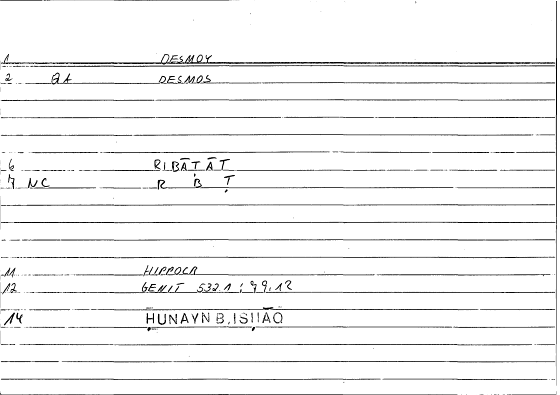 1 DESMOY
2 QA DESMOS
6 RIBĀṬĀT
7 NC R B Ṭ
11 HIPPOCR
12 GENIT 532.1 ; 79.12
14 ḤUNAYN B. ISḤĀQ